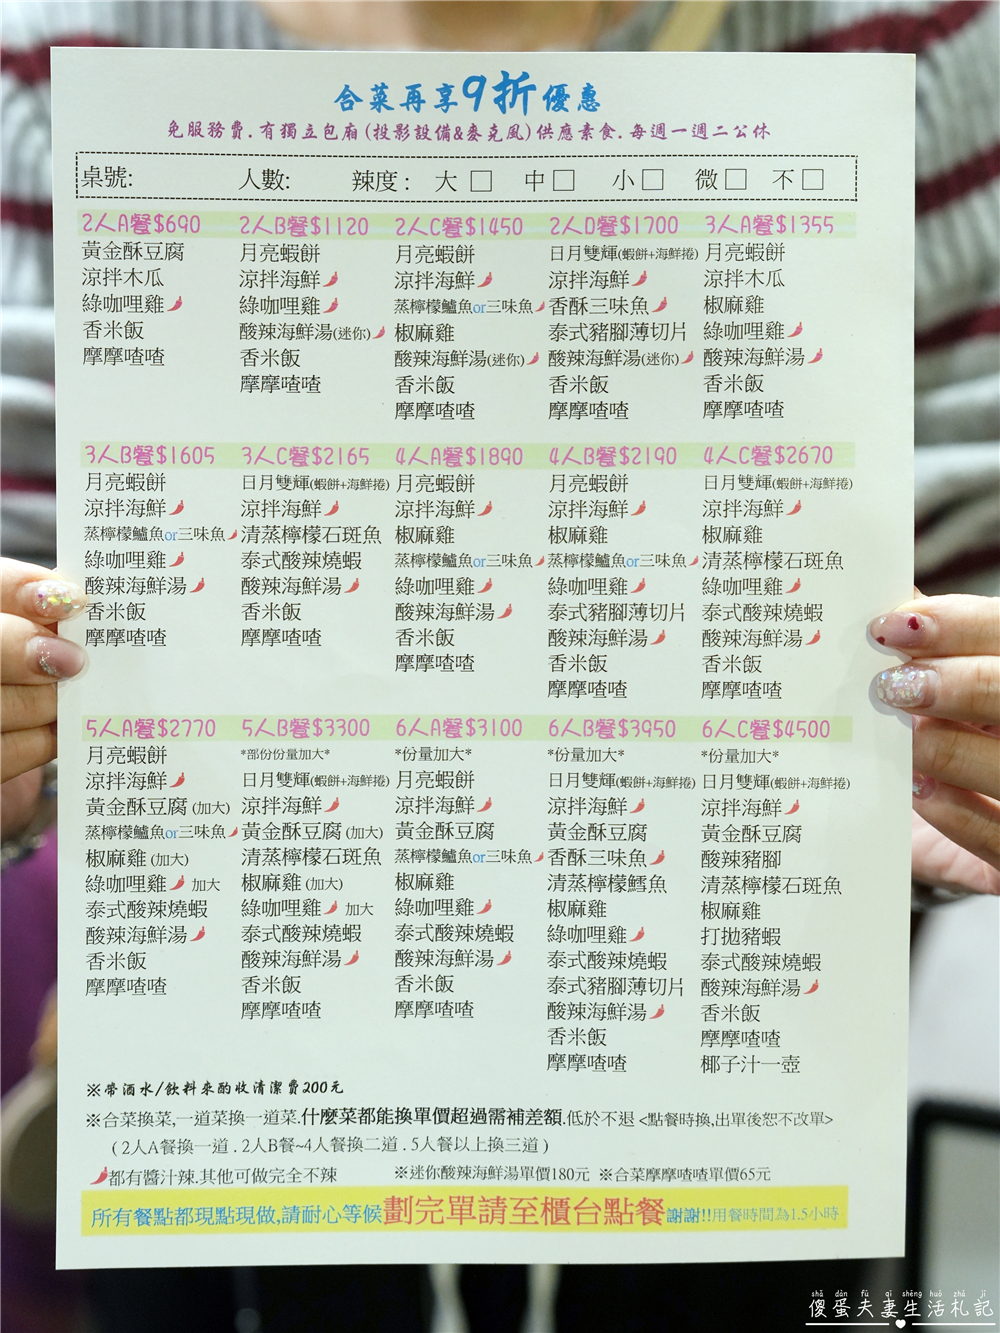 合菜再享9折優惠
免服務費.有獨立包廂(投影設備&麥克風)供應素食.每週一週二公休
桌號: 人數: 辣度: 大 □ 中 □ 小 □ 微 □ 不 □
2人A餐$690
黃金酥豆腐
涼拌木瓜
綠咖哩雞
香米飯
摩摩喳喳
2人B餐$1120
月亮蝦餅
涼拌海鮮
綠咖哩雞
酸辣海鮮湯(迷你)
香米飯
摩摩喳喳
2人C餐$1450
月亮蝦餅
涼拌海鮮
蒸檸檬鱸魚or三味魚
椒麻雞
酸辣海鮮湯(迷你)
香米飯
摩摩喳喳
2人D餐$1700
日月雙輝(蝦餅+海鮮捲)
涼拌海鮮
香酥三味魚
泰式豬腳薄切片
酸辣海鮮湯(迷你)
香米飯
摩摩喳喳
3人A餐$1355
月亮蝦餅
涼拌木瓜
椒麻雞
綠咖哩雞
酸辣海鮮湯
香米飯
摩摩喳喳
3人B餐$1605
月亮蝦餅
涼拌海鮮
蒸檸檬鱸魚or三味魚
綠咖哩雞
酸辣海鮮湯
香米飯
摩摩喳喳
3人C餐$2165
日月雙輝(蝦餅+海鮮捲)
涼拌海鮮
清蒸檸檬石斑魚
泰式酸辣燒蝦
酸辣海鮮湯
香米飯
摩摩喳喳
4人A餐$1890
月亮蝦餅
涼拌海鮮
椒麻雞
蒸檸檬鱸魚or三味魚
綠咖哩雞
酸辣海鮮湯
香米飯
摩摩喳喳
4人B餐$2190
月亮蝦餅
涼拌海鮮
椒麻雞
蒸檸檬鱸魚or三味魚
綠咖哩雞
泰式豬腳薄切片
酸辣海鮮湯
香米飯
摩摩喳喳
4人C餐$2670
日月雙輝(蝦餅+海鮮捲)
涼拌海鮮
椒麻雞
清蒸檸檬石斑魚
綠咖哩雞
泰式酸辣燒蝦
酸辣海鮮湯
香米飯
摩摩喳喳
5人A餐$2770
月亮蝦餅
涼拌海鮮
黃金酥豆腐(加大)
蒸檸檬鱸魚or三味魚
椒麻雞(加大)
綠咖哩雞 加大
泰式酸辣燒蝦
酸辣海鮮湯
香米飯
摩摩喳喳
5人B餐$3300
*部份份量加大*
日月雙輝(蝦餅+海鮮捲)
涼拌海鮮
黃金酥豆腐(加大)
清蒸檸檬石斑魚
椒麻雞(加大)
綠咖哩雞 加大
泰式酸辣燒蝦
酸辣海鮮湯
香米飯
摩摩喳喳
6人A餐$3100
*份量加大*
月亮蝦餅
涼拌海鮮
黃金酥豆腐
蒸檸檬鱸魚or三味魚
椒麻雞
綠咖哩雞
泰式酸辣燒蝦
酸辣海鮮湯
香米飯
摩摩喳喳
6人B餐$3950
*份量加大*
日月雙輝(蝦餅+海鮮捲)
涼拌海鮮
黃金酥豆腐
香酥三味魚
清蒸檸檬鱈魚
椒麻雞
綠咖哩雞
泰式酸辣燒蝦
泰式豬腳薄切片
酸辣海鮮湯
香米飯
摩摩喳喳
6人C餐$4500
*份量加大*
日月雙輝(蝦餅+海鮮捲)
涼拌海鮮
黃金酥豆腐
酸辣豬腳
清蒸檸檬石斑魚
椒麻雞
打拋豬蝦
泰式酸辣燒蝦
酸辣海鮮湯
香米飯
摩摩喳喳
椰子汁一壺
※帶酒水/飲料來酌收清潔費200元
※合菜換菜,一道菜換一道菜.什麼菜都能換單價超過需補差額.低於不退<點餐時換,出單後恕不改單>
(2人A餐換一道.2人B餐~4人餐換二道.5人餐以上換三道)
都有醬汁辣.其他可做完全不辣 ※迷你酸辣海鮮湯單價180元 ※合菜摩摩喳喳單價65元
所有餐點都現點現做,請耐心等候劃完單請至櫃台點餐謝謝!!用餐時間為1.5小時
shǎ dàn fū qī shēng huó zhá jì
傻蛋夫妻生活札記